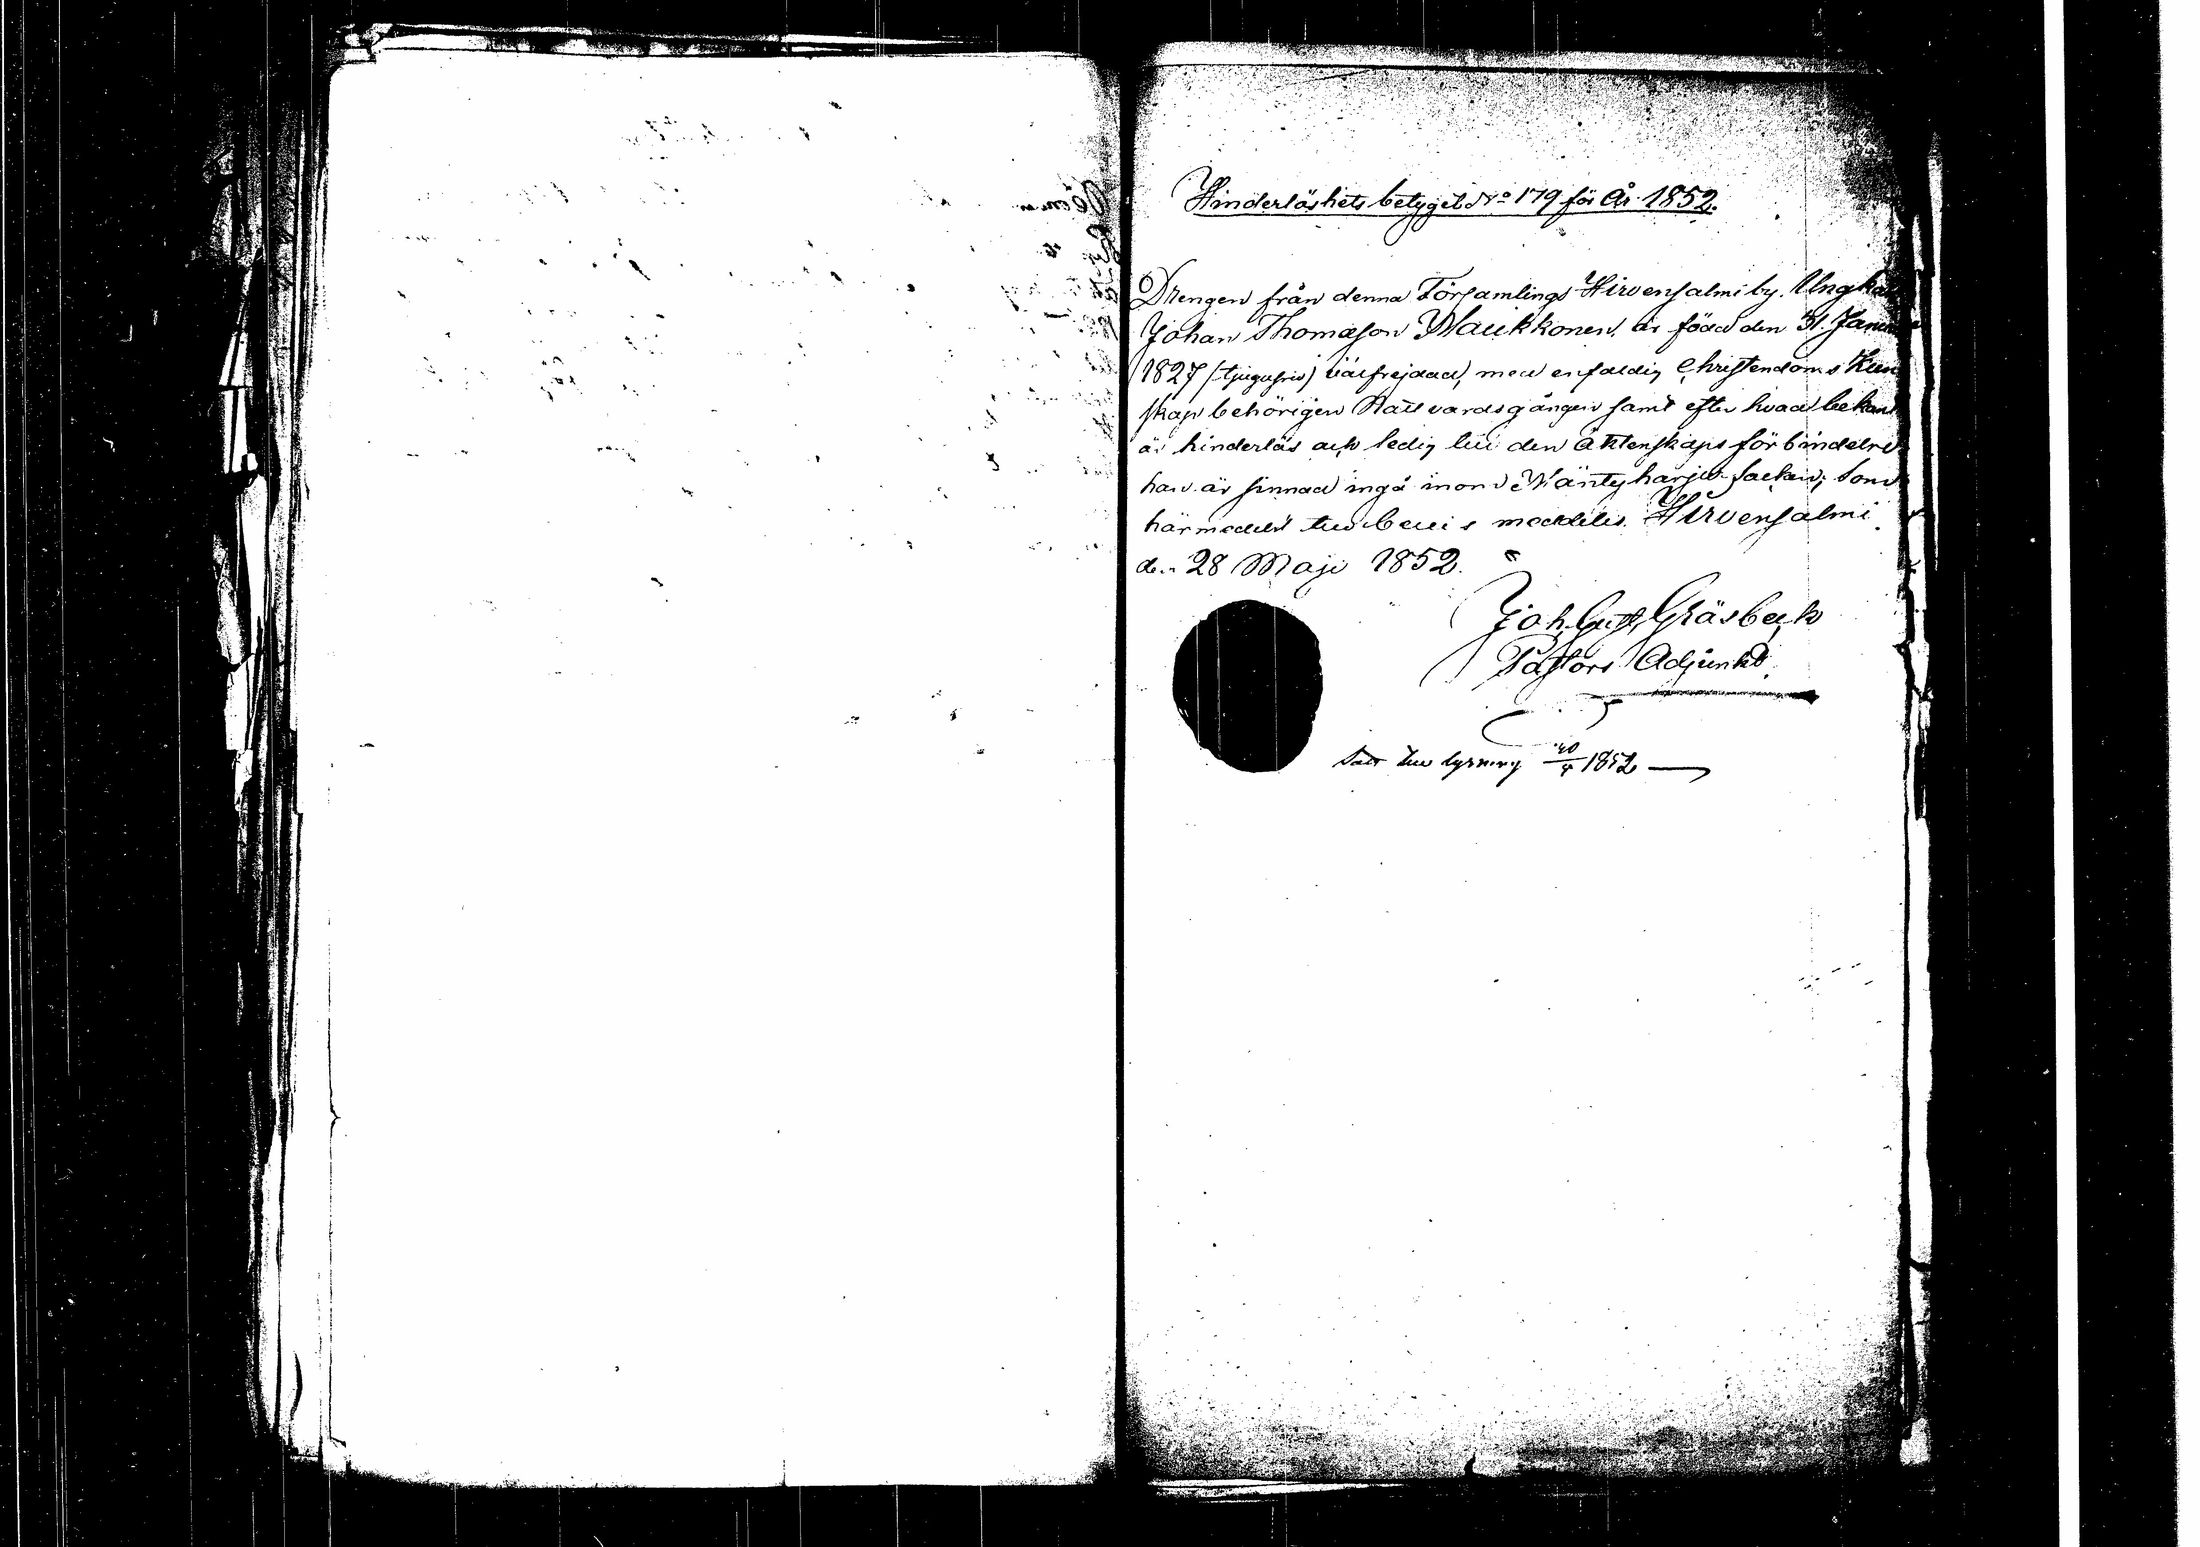 Hinderlöshets betyget No 179 för År 1852.
Drengen från denna Församlings Hirvensalmi by. Ungkar
Johan Thomasson Maukkonen, är född den 31. Janu
1827 (tjugusju) välfrejdad, med enfaldig Christendoms Kun
skap behörigen Nattvardsgången samt efter hvad bekant
är hinderlös och ledig till den Äktenskaps förbindelse
han är sinnad ingå inom Mäntyharju Socken; som
härmedelst till bevis meddeles. Hirvensalmi
den 28 Maji 1852.
Joh. Gust. Gräsbeck
Pastors Adjunkt.
till lysning 1852